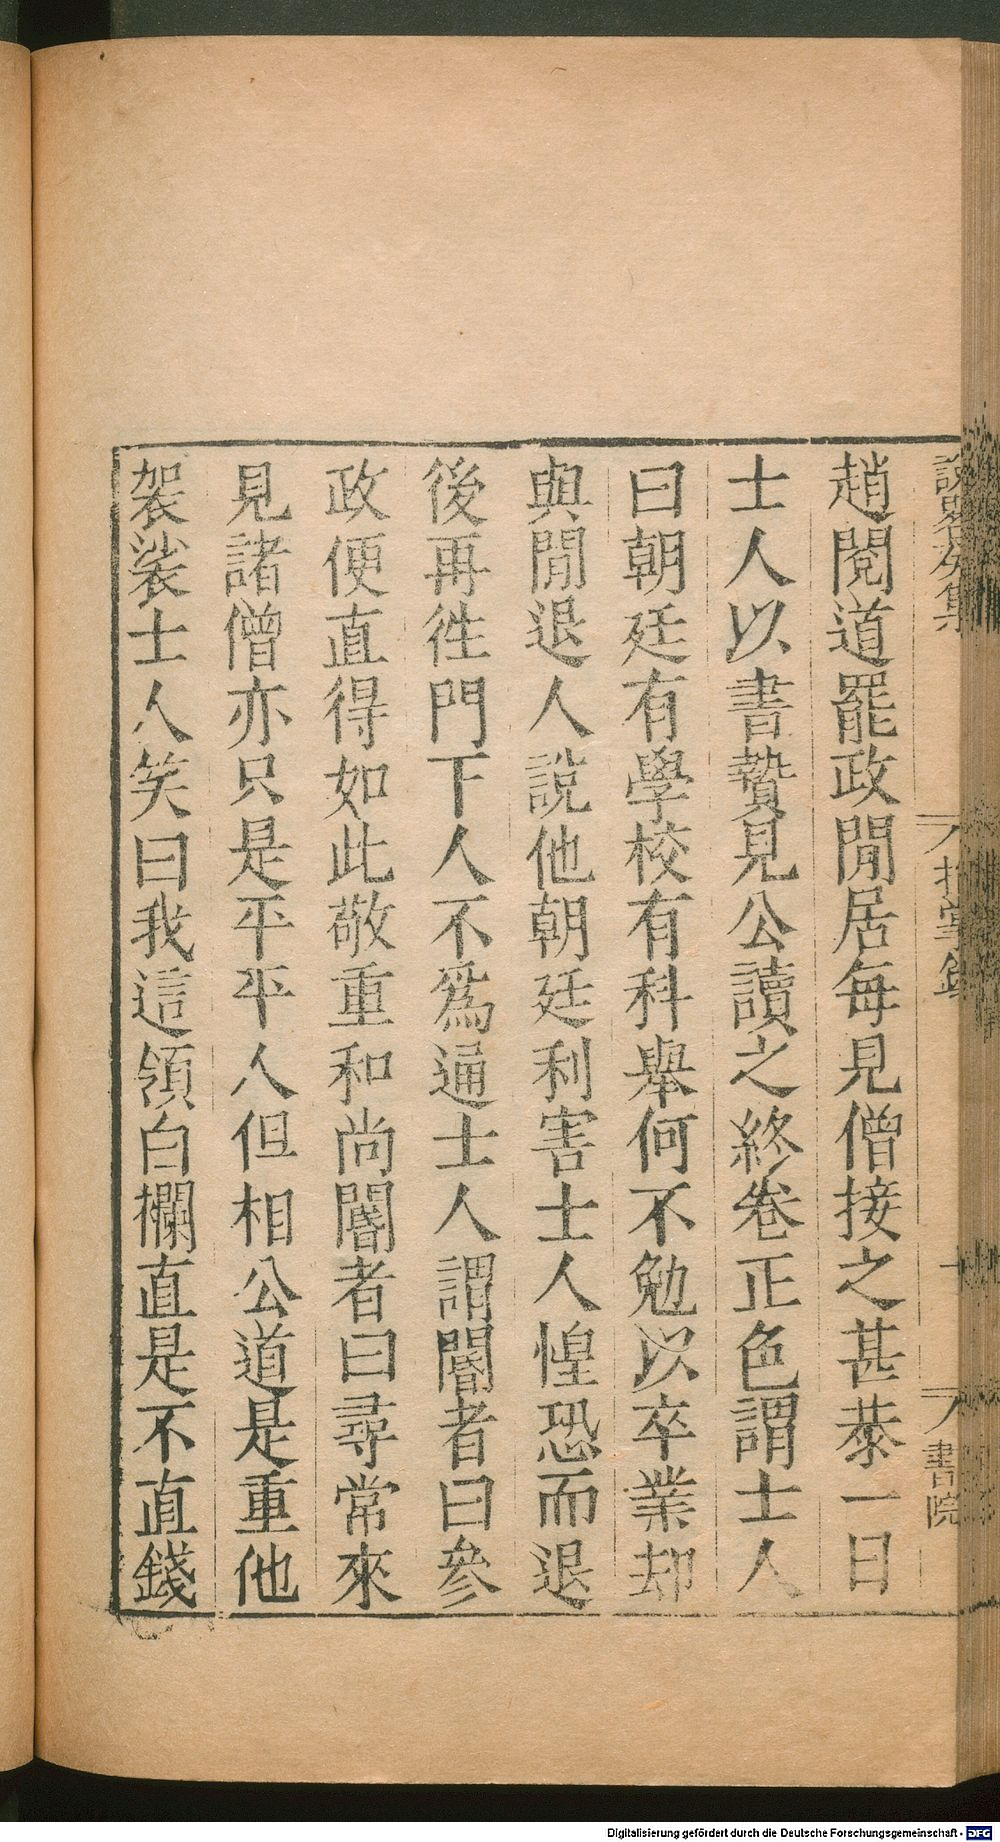 趙閱道罷政閒居每見僧接之甚恭一日
士人以書贄見公讀之終卷正色謂士人
曰朝廷有學校有科舉何不勉以卒業却
與閒退人說他朝廷利害士人惶恐而退
後再徃門下人不爲通士人謂閽者曰參
政便直得如此敬重和尚閽者曰尋常來
見諸僧亦只是平平人但相公道是重他
袈裟士人笑曰我這領白襴直是不直錢
書院
Digitalisierung gefördert durch die Deutsche Forschungsgemeinschaft - DFG